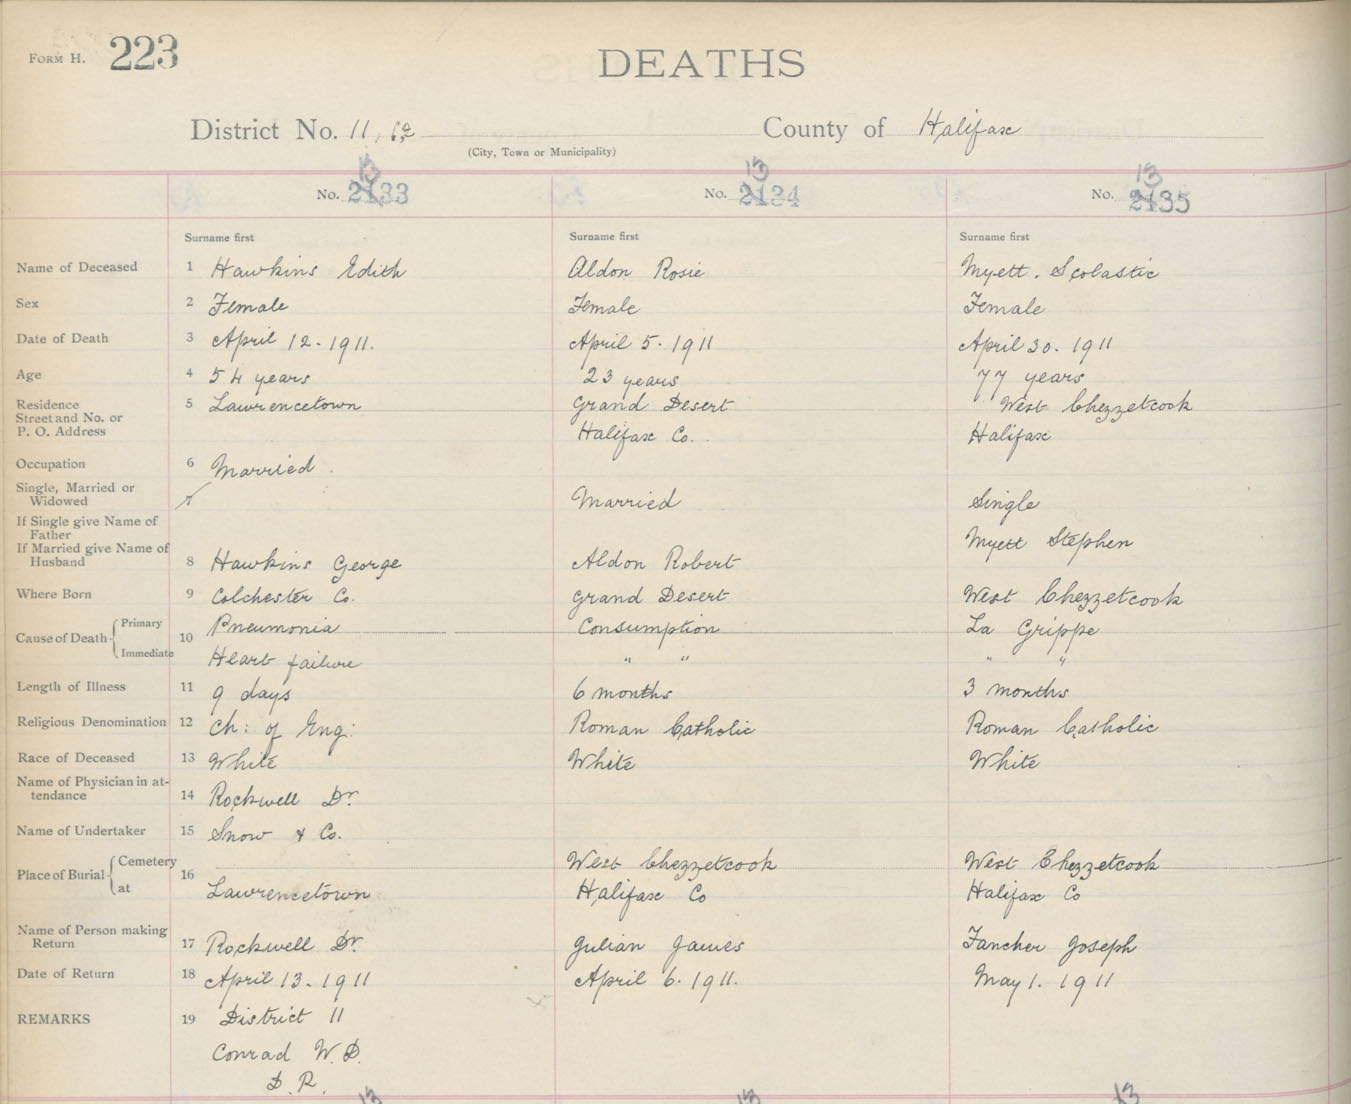 FORM H. 223
DEATHS
District No. 11, 12
County of Halifax
(City, Town or Municipality)
13 13 13
No. 2133 No. 2134 No. 2135
Surname first Surname first Surname first
Name of Deceased 1 Hawkins Edith Aldon Rosie Myett. Scolastic
Sex 2 Female Female Female
Date of Death 3 April 12. 1911. April 5. 1911 April 30. 1911
Age 4 54 years 23 years 77 years
Residence 5 Lawrencetown Grand Desert West Chezzetcook
Street and No. or
P. O. Address Halifax Co. Halifax
Occupation 6 Married.
Single, Married or
Widowed 7 Married Single
If Single give Name of
Father Myett Stephen
If Married give Name of
Husband 8 Hawkins George Aldon Robert
Where Born 9 Colchester Co. Grand Desert West Chezzetcook
Cause of Death 10 Primary Pneumonia Consumption La Grippe
Immediate Heart failure " " " "
Length of Illness 11 9 days 6 months 3 months
Religious Denomination 12 Ch: of Eng: Roman Catholic Roman Catholic
Race of Deceased 13 White White White
Name of Physician in at-
tendance 14 Rockwell Dr.
Name of Undertaker 15 Snow & Co.
Place of Burial 16 Cemetery West Chezzetcook West Chezzetcook
at Lawrencetown Halifax Co Halifax Co
Name of Person making
Return 17 Rockwell Dr. Julian James Fancher Joseph
Date of Return 18 April 13. 1911 April 6. 1911. May 1. 1911
REMARKS 19 District 11
Conrad W. D.
D. R.
13 13 13